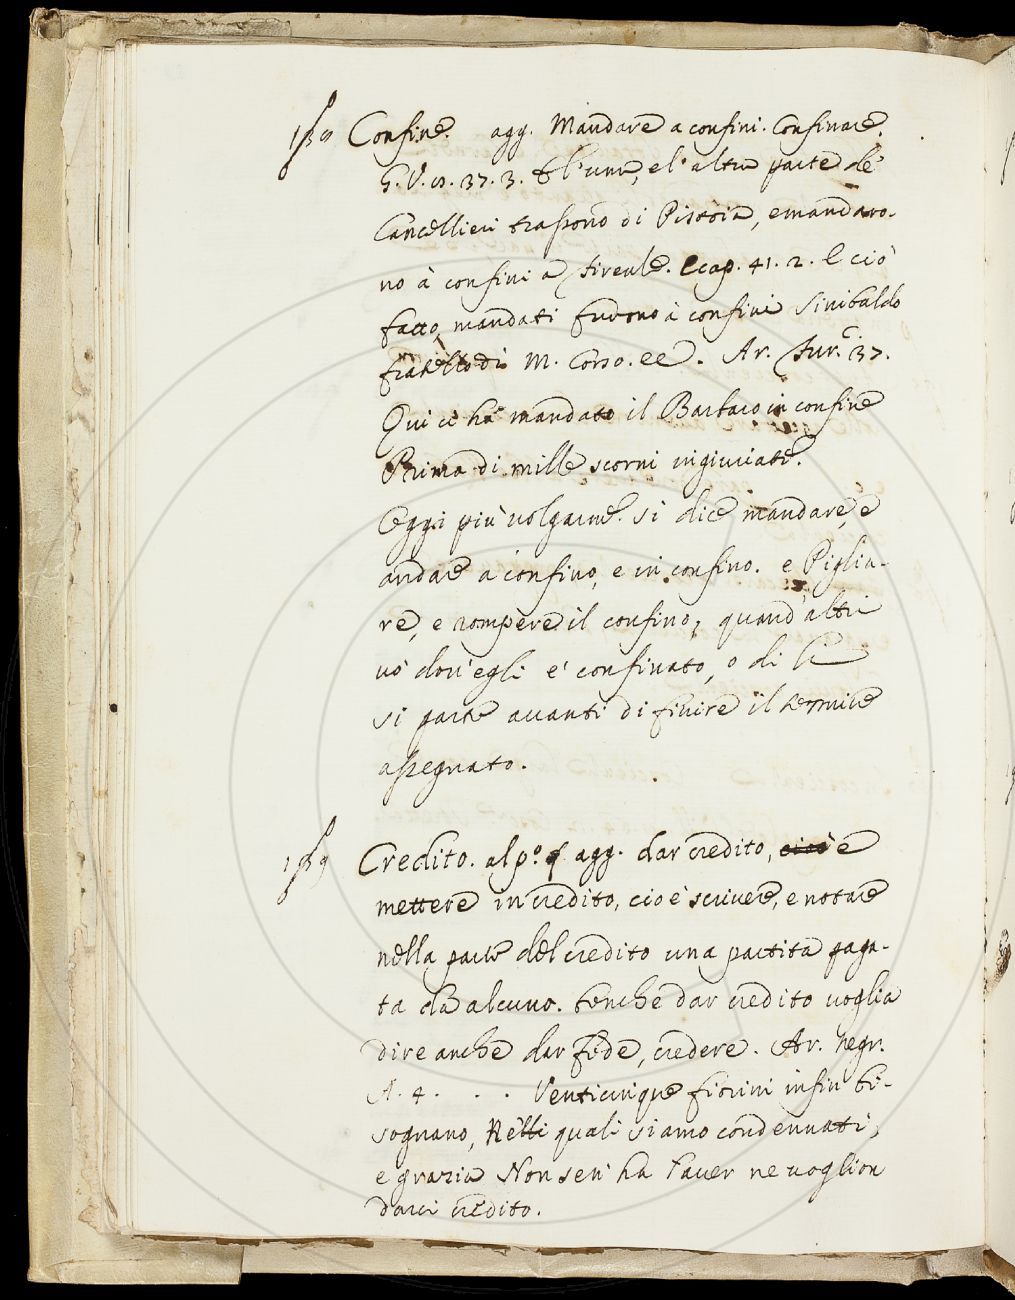 Confine. agg. Mandare a confini. Confinare.
G. V. 37. 3. E l'una, e l'altra parte de'
Cancellieri trassono di Pistoia, e mandaro-
no à confini a Firenze. E cap. 41. 2. E ciò
fatto, mandati furono à confini Sinibaldo
fratello di M. Corso. ec. Ar. Fur. 37.
Qui ci hà mandato il Barbaro in confine
Prima di mille scorni ingiuriate.
Oggi più volgarm. si dice mandare, e
andare a confino, e in confino. e Piglia-
re, e rompere il confino, quand'altri
và dov'egli è confinato, o di lì
si parte avanti di finire il termine
assegnato.
Credito. al p.º § agg. dar credito, cioè e
mettere in credito, cio è scrivere, e notare
nella parte del credito una partita paga-
ta da alcuno. benche dar credito voglia
dire anche dar fede, credere. Ar. Negr.
A. 4. . . . Venticinque fiorini infin bi-
sognano, Nelli quali siamo condennati,
e grazia Non sen' ha l'aver ne voglion
darci credito.